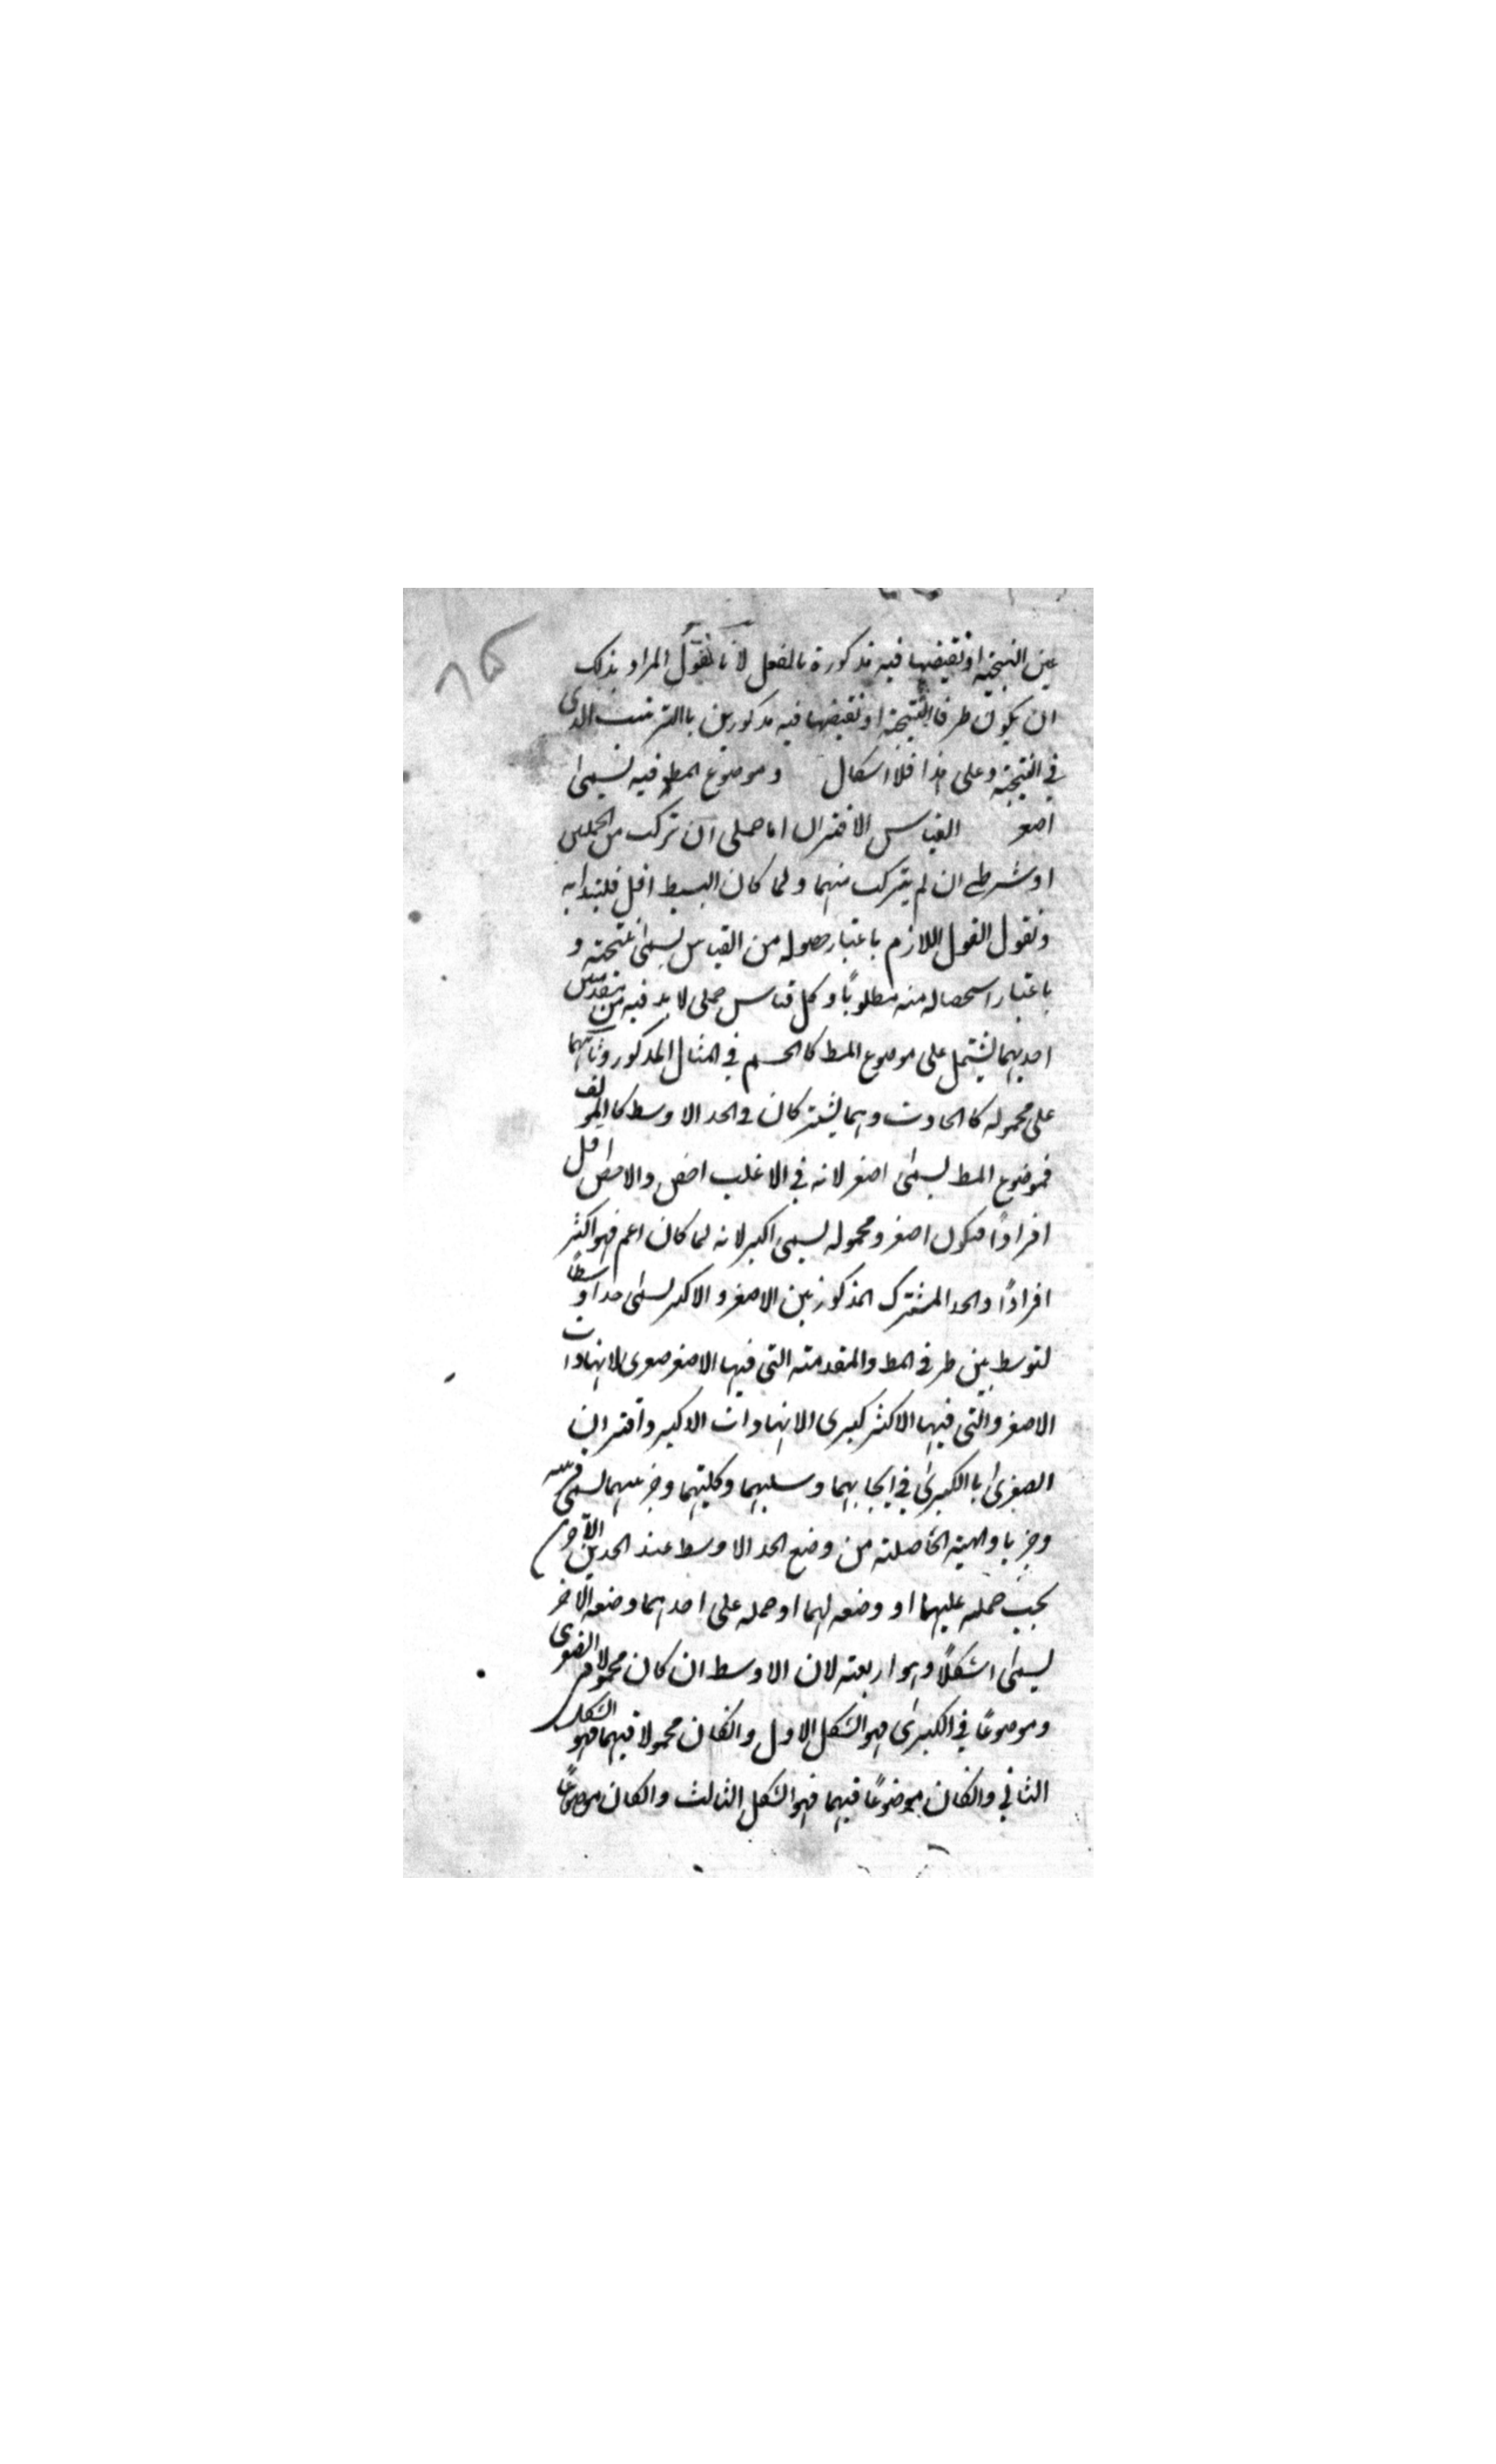 عين النتيجة او نقيضها فيه مذكورة بالفعل لانا نقول المراد بذلك
ان يكون طرفا النتيجة او نقيضها فيه مذكورين باالترتيب الذى
في النتيجة وعلى هذا فلا اشكال وموضوع المط فيه يسمى
اصغر القياس الاقترانى اما حملى ان تركب من الحمليين
او شرطى ان لم يتركب منهما ولما كان البسيط اقل فلنبدا به
ونقول القول اللازم باعتبار حصوله من القياس يسمى نتيجة و
باعتبار استحصاله منه مطلوبًا وكل قياس حملى لا بد فيه من مقدمتين
احديهما يشتمل على موضوع المط كالجسم في المثال المذكور وثانيتهما
على محموله كالحادث وهما يشتركان في الحد الاوسط كالمولف
فموضوع المط يسمى اصغر لانه في الاغلب اخص والاخص اقل
افرادًا فيكون اصغر ومحموله يسمى اكبر لانه لما كان اعم فهو اكثر
افرادًا والحد المشترك المذكور بين الاصغر والاكبر يسمى حدا اوسطًا
لتوسط بين طرفي المط والمقدمته التى فيها الاصغر صغرى لانها ذات
الاصغر والتى فيها الاكثر كبرى لانها ذات الاكبر واقتران
الصغرىٰ باالكبرىٰ في ايجابهما وسلبهما وكليتهما وجزئيتهما يسمى قرينة
وضربا والهيئة الحاصلته من وضع الحد الاوسط عند الحدين الآخرين
بحسب حمله عليهما او وضعه لهما او حمله على احدهما وضعه الاخر
يسمى اشكلًا وهو اربعته لان الاوسط ان كان محمولا في الصغرى
وموضوعًا في الكبرىٰ فهو الشكل الاول وانكان محمولا فيهما فهو الشكل
الثاني وانكان موضوعًا فيهما فهو الشكل الثالث وانكان موضوعًا